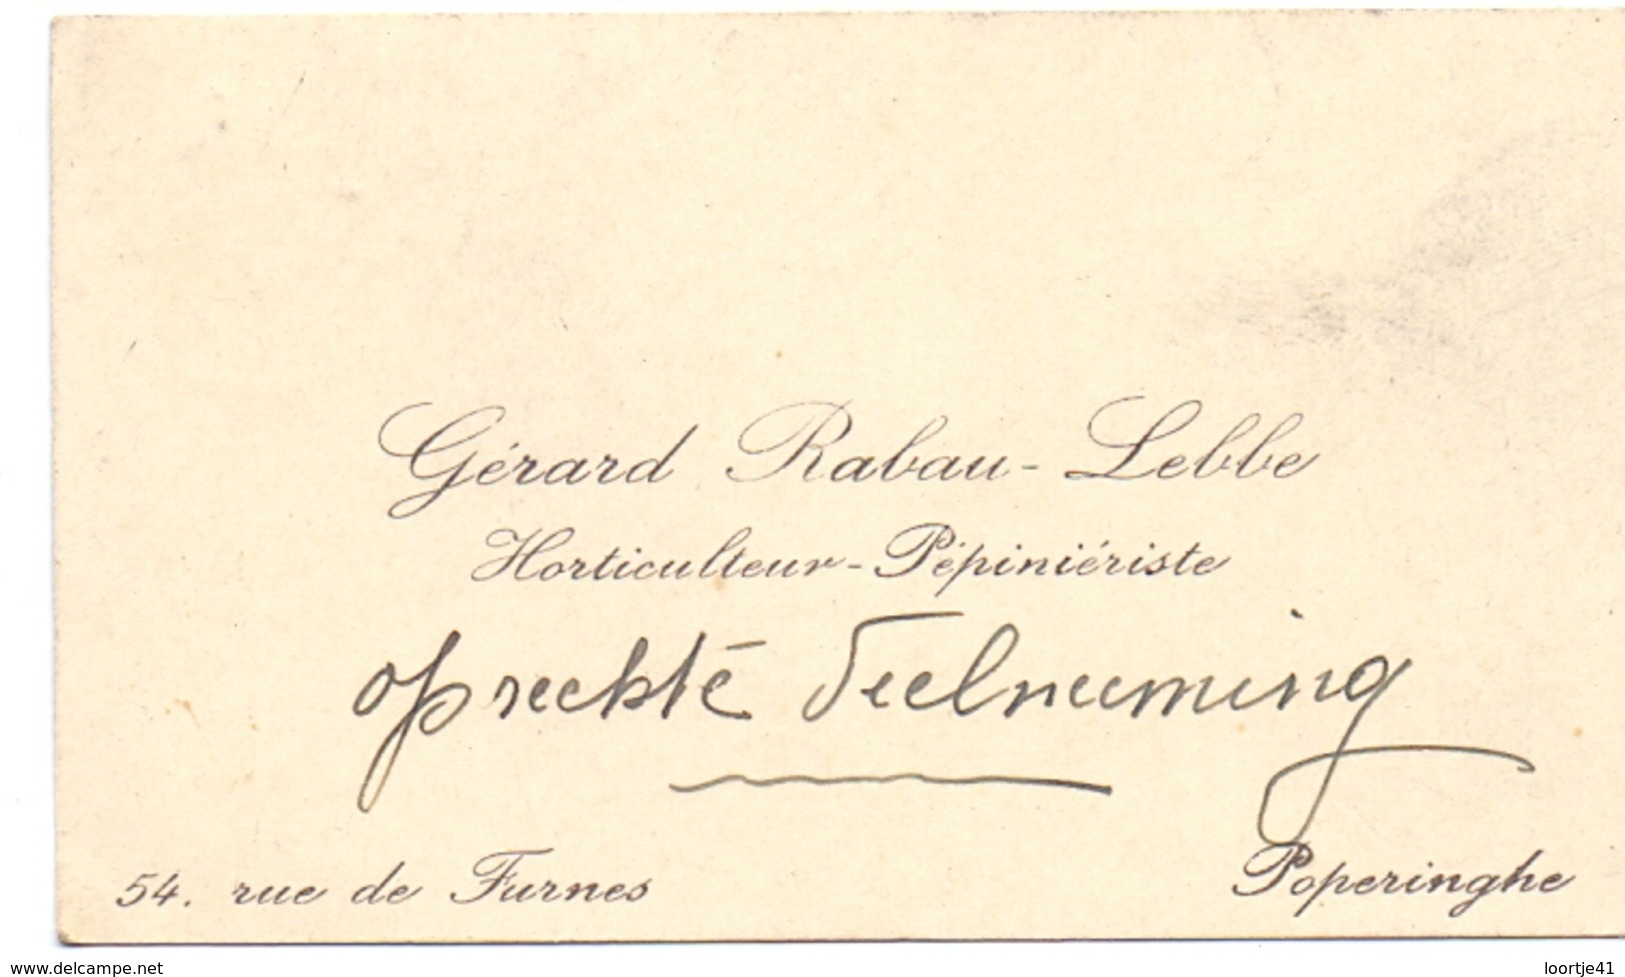 Gérard Rabau-Lebbe
Horticulteur-Pépiniériste
oprechte deelneeming
54. rue de Furnes
Poperinghe
www.delcampe.net
loortje41